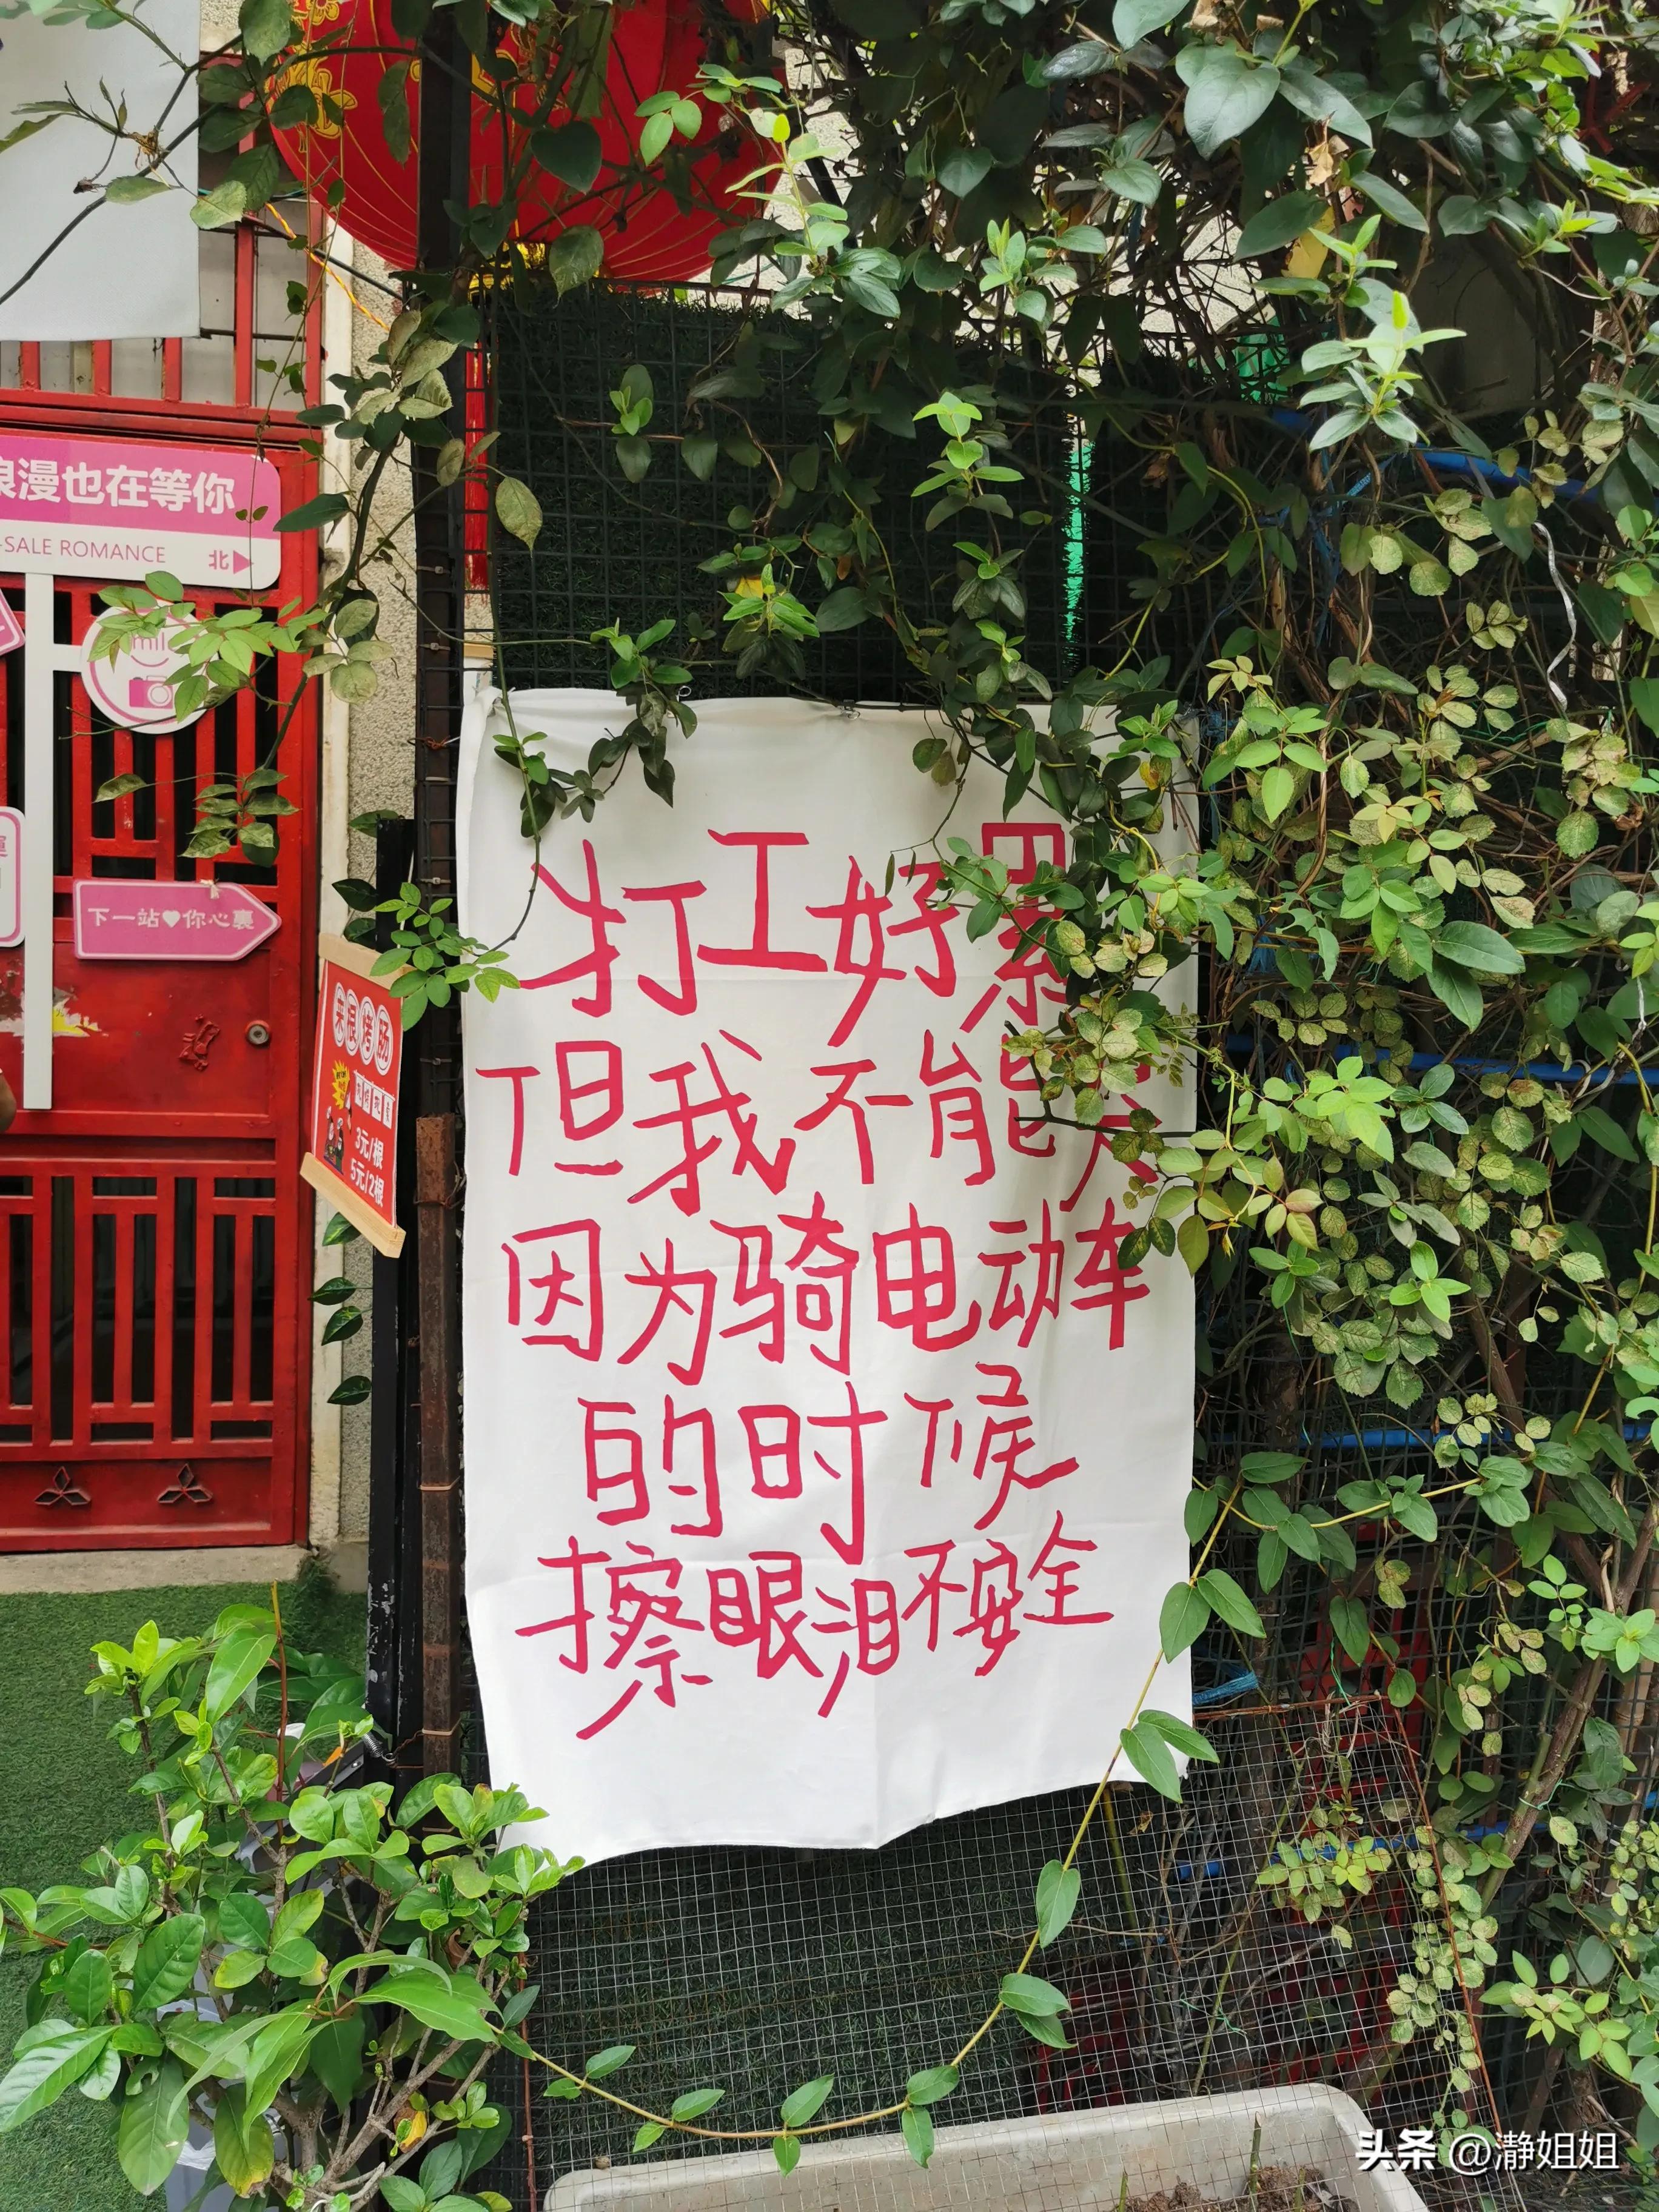 漫也在等你
-SALE ROMANCE
北
下一站♥你心裏
烤肠
3元/根
5元/2根
打工好累
但我不能哭
因为骑电动车
的时候
擦眼泪不安全
头条 @瀞姐姐